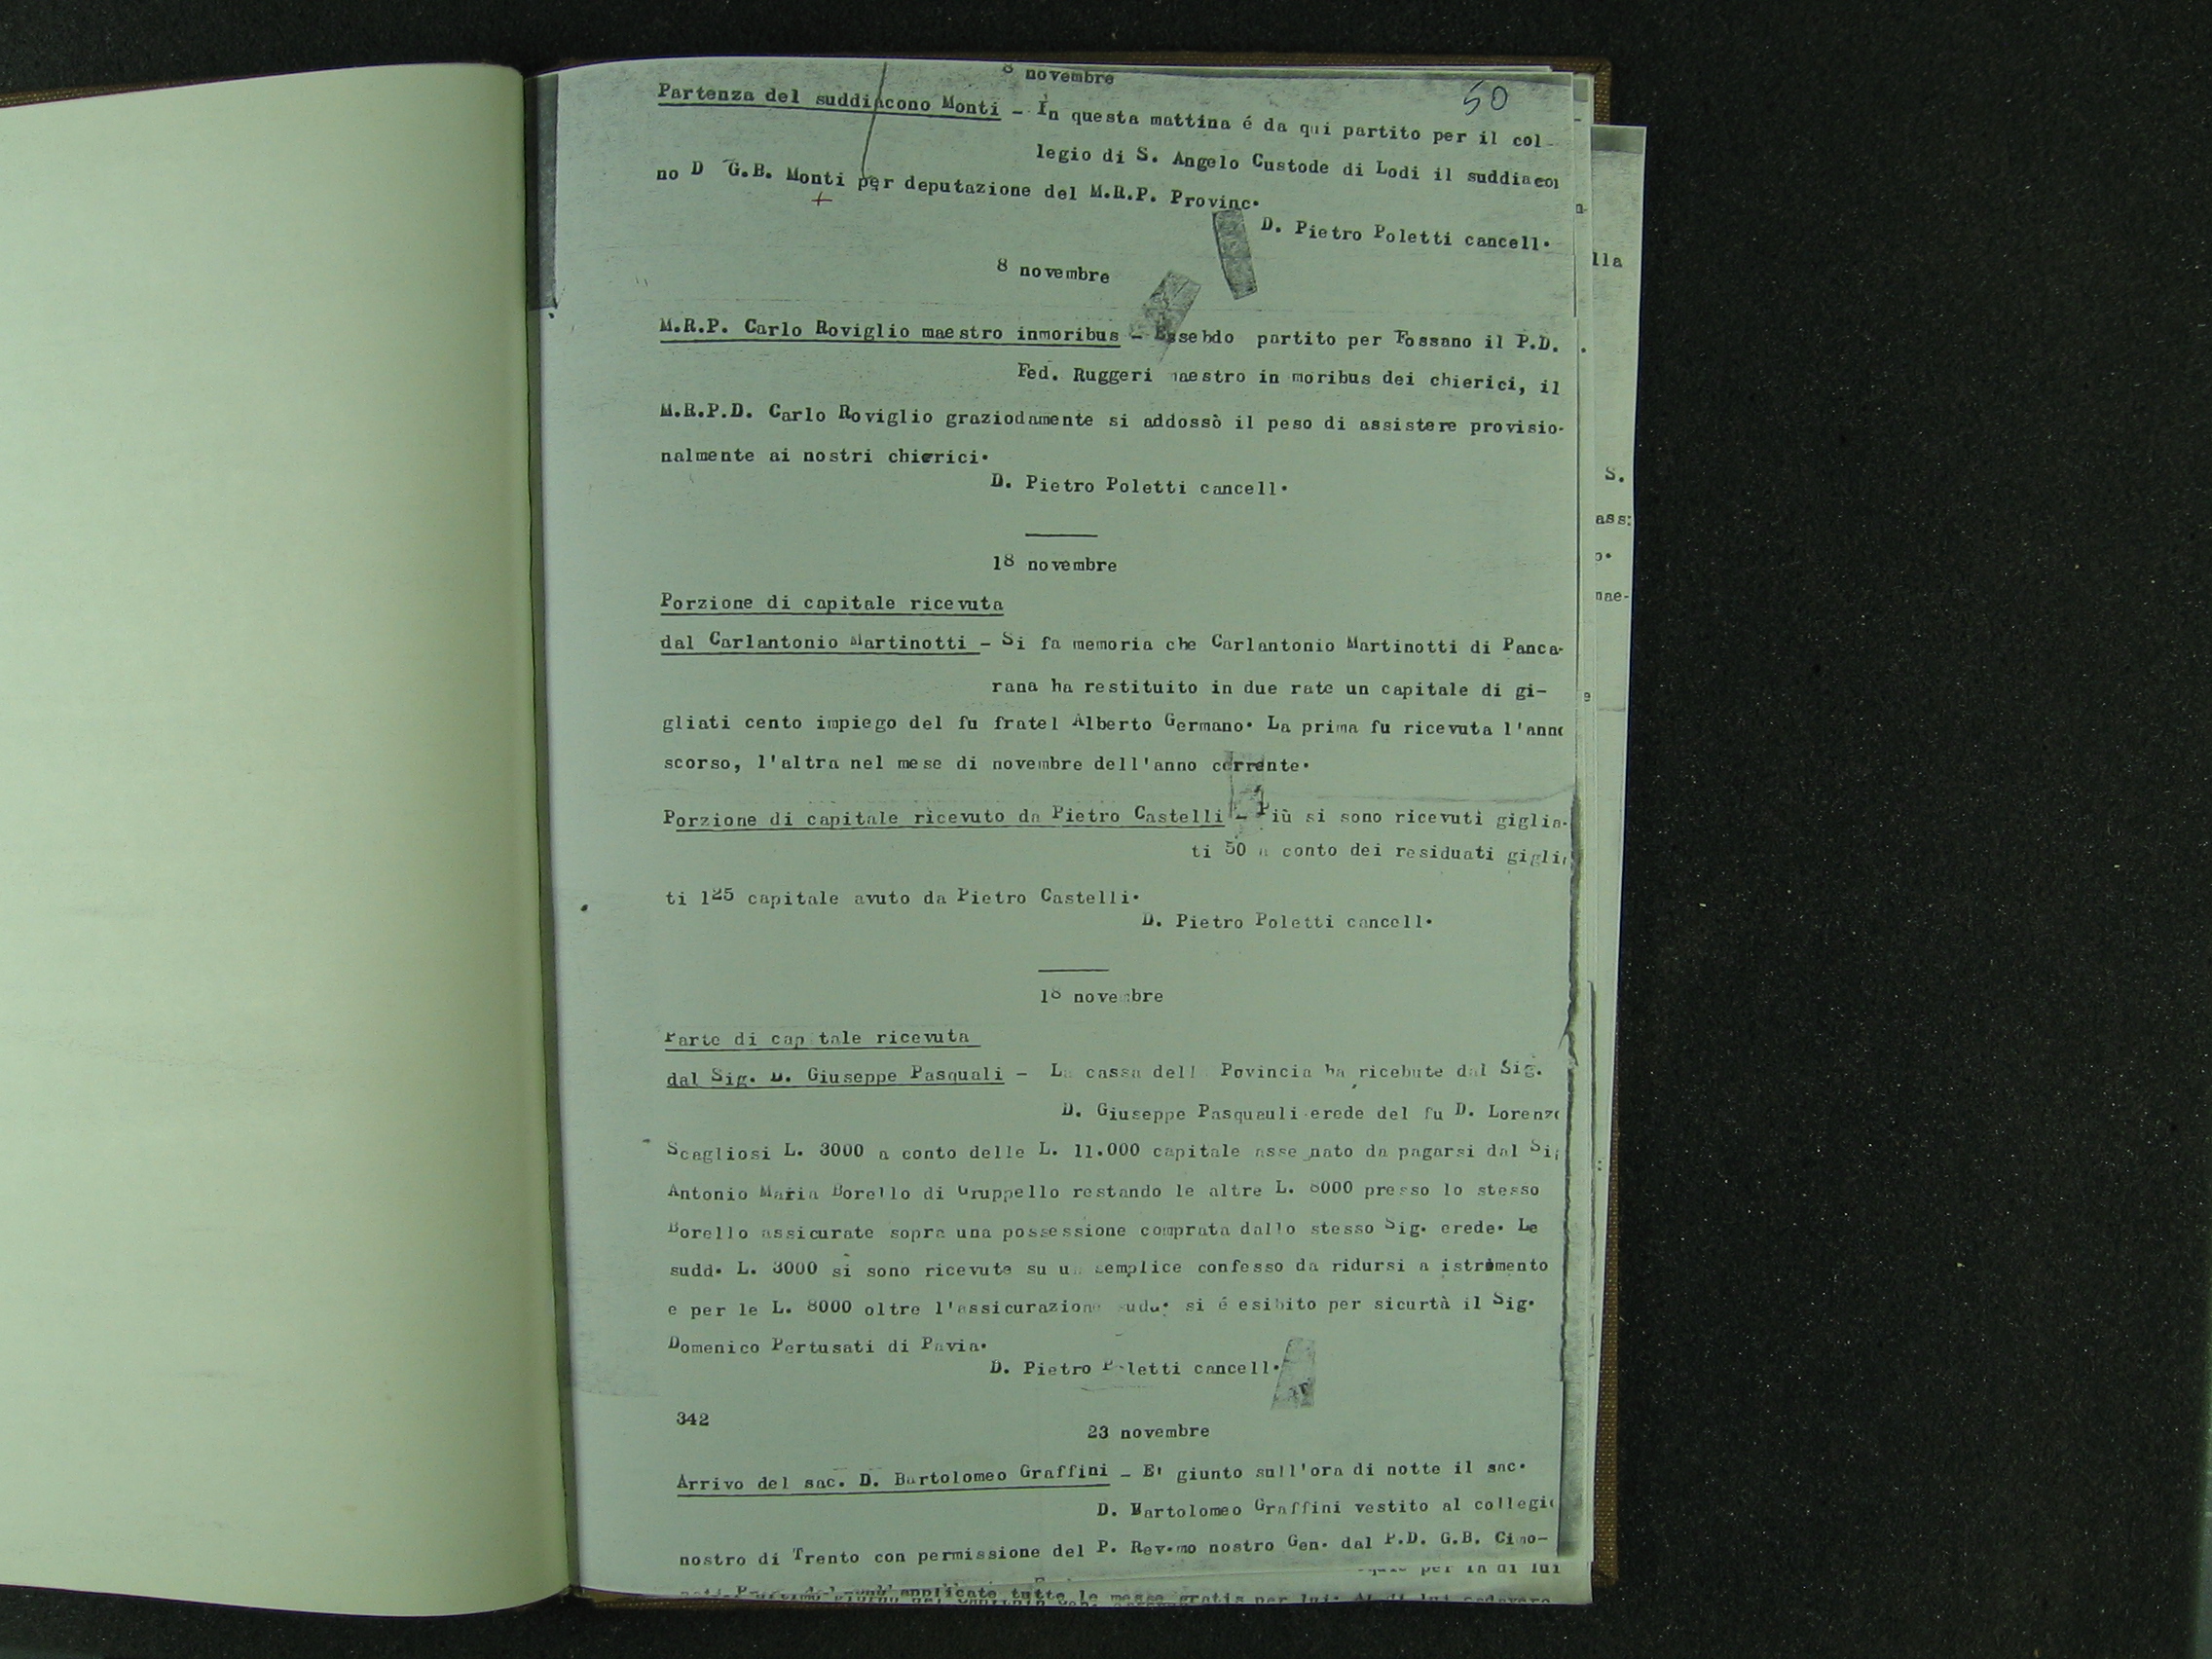 8 novembre
50
Partenza del suddiacono Monti - In questa mattina é da qui partito per il col-
legio di S. Angelo Custode di Lodi il suddiacon
no D G.B. Monti per deputazione del M.R.P. Provinc.
D. Pietro Poletti cancell.
8 novembre
M.R.P. Carlo Roviglio maestro inmoribus - Essehdo partito per Fossano il P.D.
Fed. Ruggeri maestro in moribus dei chierici, il
M.R.P.D. Carlo Roviglio graziodamente si addossò il peso di assistere provisio-
nalmente ai nostri chierici.
D. Pietro Poletti cancell.
18 novembre
Porzione di capitale ricevuta
dal Carlantonio Martinotti - Si fa memoria che Carlantonio Martinotti di Panca-
rana ha restituito in due rate un capitale di gi-
gliati cento impiego del fu fratel Alberto Germano. La prima fu ricevuta l'anno
scorso, l'altra nel mese di novembre dell'anno corrente.
Porzione di capitale ricevuto da Pietro Castelli - Più si sono ricevuti giglia-
ti 50 a conto dei residuati giglia
ti 125 capitale avuto da Pietro Castelli.
D. Pietro Poletti cancell.
18 novembre
Parte di capitale ricevuta
dal Sig. D. Giuseppe Pasquali - La cassa dell Povincia ha ricebute dal Sig.
D. Giuseppe Pasquauli erede del fu D. Lorenzo
Scagliosi L. 3000 a conto delle L. 11.000 capitale assegnato da pagarsi dal Sig
Antonio Maria Borello di Gruppello restando le altre L. 8000 presso lo stesso
Borello assicurate sopra una possessione comprata dallo stesso Sig. erede. Le
sudd. L. 3000 si sono ricevute su un semplice confesso da ridursi a istromento
e per le L. 8000 oltre l'assicurazione sudd. si é esibito per sicurtà il Sig.
Domenico Pertusati di Pavia.
D. Pietro Poletti cancell.
342
23 novembre
Arrivo del sac. D. Bartolomeo Graffini - E' giunto sull'ora di notte il sac.
D. Bartolomeo Graffini vestito al collegio
nostro di Trento con permissione del P. Rev.mo nostro Gen. dal P.D. G.B. Cimo-
per in di lui
applicate tutte le messe gratis per lui.
lla
S.
ass:
o.
mae-